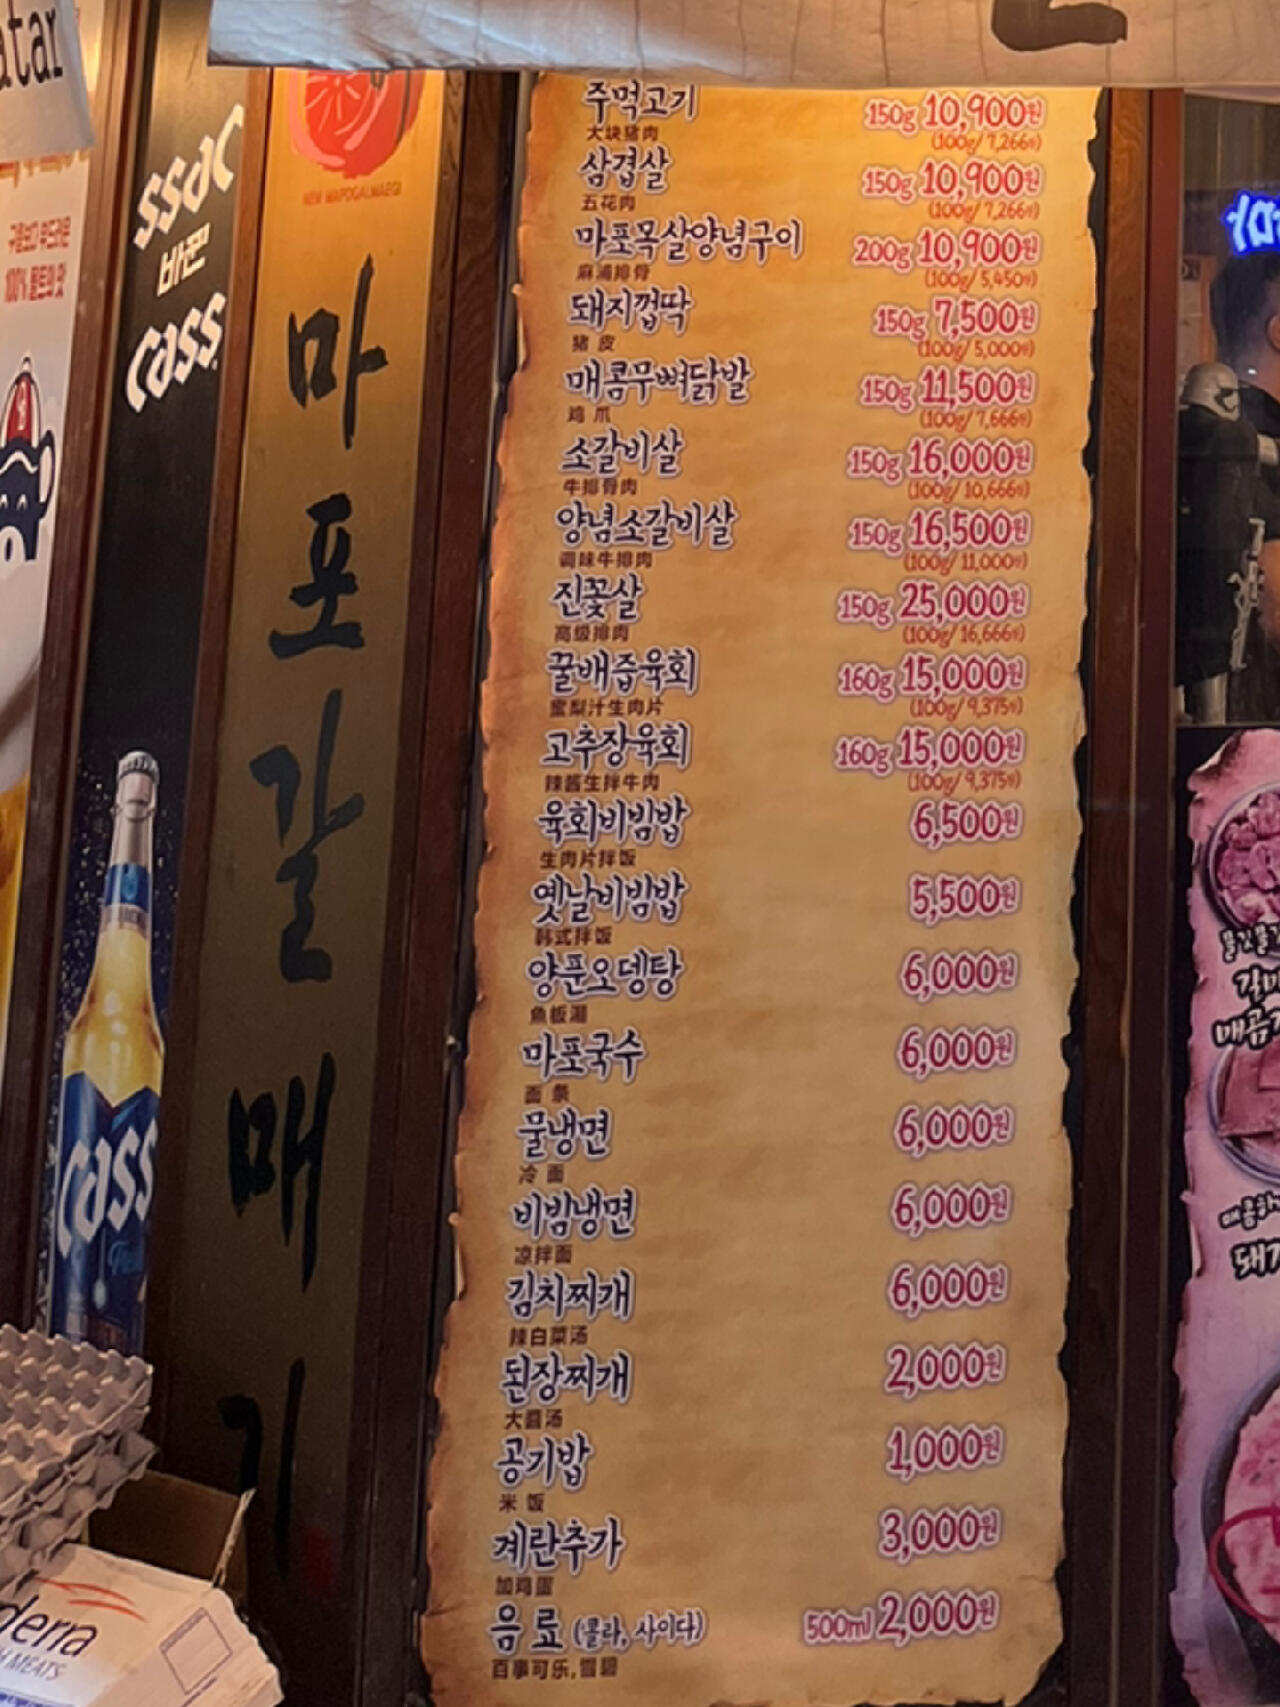 atar
ssac
바끈
cass
구름보다 부드러운
100% 몰트의 맛
NEW MAPOGALMAEGI
마
포
갈
매
기
cass
주먹고기 150g 10,900원
大块猪肉 (100g/ 7,266원)
삼겹살 150g 10,900원
五花肉 (100g/ 7,266원)
마포목살양념구이 200g 10,900원
麻浦排骨 (100g/ 5,450원)
돼지껍딱 150g 7,500원
猪 皮 (100g/ 5,000원)
매콤무뼈닭발 150g 11,500원
鸡 爪 (100g/ 7,666원)
소갈비살 150g 16,000원
牛排骨肉 (100g/ 10,666원)
양념소갈비살 150g 16,500원
调味牛排肉 (100g/ 11,000원)
진꽃살 150g 25,000원
高级排肉 (100g/ 16,666원)
꿀배즙육회 160g 15,000원
蜜梨汁生肉片 (100g/ 9,375원)
고추장육회 160g 15,000원
辣酱生拌牛肉 (100g/ 9,375원)
육회비빔밥 6,500원
生肉片拌饭
옛날비빔밥 5,500원
韩式拌饭
양푼오뎅탕 6,000원
魚板湯
마포국수 6,000원
面 条
물냉면 6,000원
冷 面
비빔냉면 6,000원
凉拌面
김치찌개 6,000원
辣白菜汤
된장찌개 2,000원
大酱汤
공기밥 1,000원
米 饭
계란추가 3,000원
加鸡蛋
음료 (콜라, 사이다) 500ml 2,000원
百事可乐,雪碧
derra
MEATS